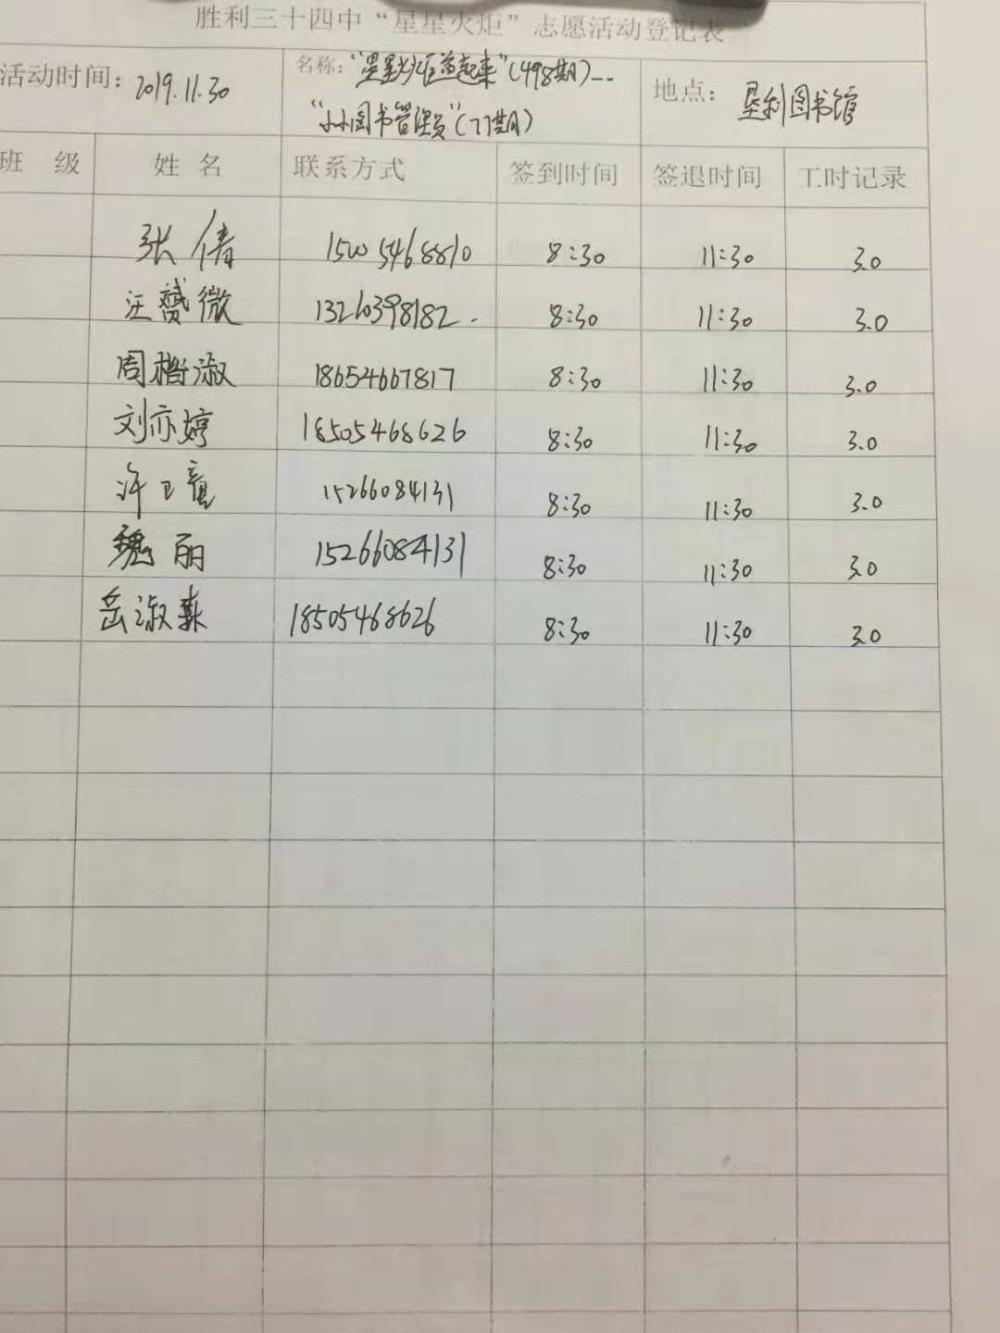 胜利三十四中“星星火炬”志愿活动登记表
活动时间：2019.11.30
名称：“星星火炬 起来”(498期)--
“小小图书管理员”(77期)
地点：垦利图书馆
班 级 姓 名 联系方式 签到时间 签退时间 工时记录
张倩 15005468810 8:30 11:30 3.0
汪赟微 13260398182. 8:30 11:30 3.0
周楷淑 18654667817 8:30 11:30 3.0
刘亦婷 18505468626 8:30 11:30 3.0
许卫童 15266084131 8:30 11:30 3.0
魏丽 15266084131 8:30 11:30 3.0
岳淑森 18505468626 8:30 11:30 3.0